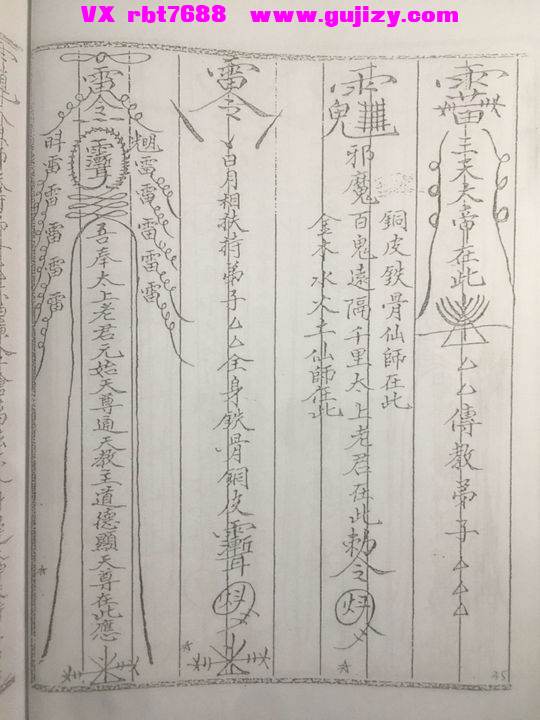 VX rbt7688 www.gujizy.com
三天太帝在此
厶厶傳教弟子厶厶厶
銅皮鉄骨仙師在此
邪魔百鬼遠隔千里太上老君在此勅令
金木水火土仙師在此
雷令
日月相扶持弟子厶厶全身鉄骨銅皮
雷令
雷雷雷雷雷
雷雷雷雷
吾奉太上老君元始天尊通天教主道德顯天尊在此應
45